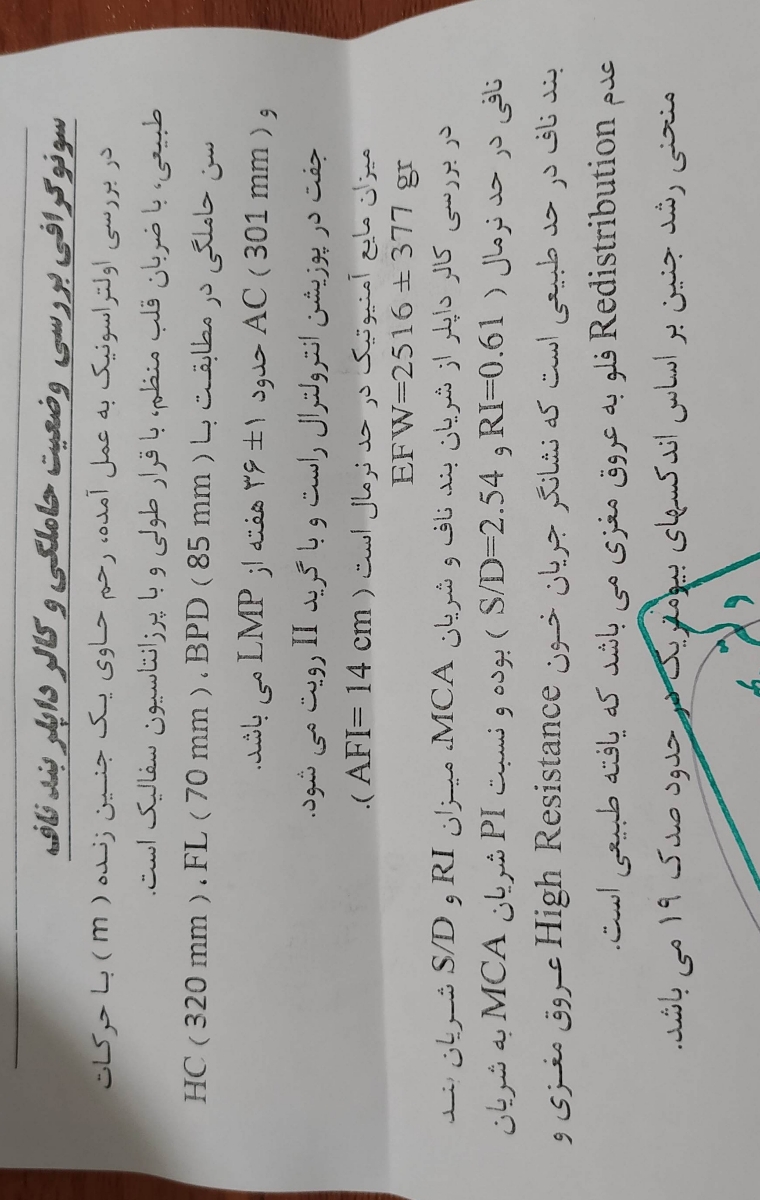 سونوگرافی بررسی وضعیت حاملگی و کالر داپلر بند ناف
در بررسی اولتراسونیک به عمل آمده، رحم حاوی یک جنین زنده ( m ) با حرکات
طبیعی، با ضربان قلب منظم، با قرار طولی و با پرزانتاسیون سفالیک است.
سن حاملگی در مطابقت با ( BPD ( 85 mm ) ، FL ( 70 mm ) ، HC ( 320 mm
و ( AC ( 301 mm حدود ۱± ۳۶ هفته از LMP می باشد.
جفت در پوزیشن انترولترال راست و با گرید II رویت می شود.
میزان مایع آمنیوتیک در حد نرمال است ( AFI= 14 cm ).
EFW=2516 ± 377 gr
در بررسی کالر داپلر از شریان بند ناف و شریان MCA، میزان RI و S/D شریان بند
نافی در حد نرمال ( RI=0.61 و S/D=2.54 ) بوده و نسبت PI شریان MCA به شریان
بند ناف در حد طبیعی است که نشانگر جریان خون High Resistance عروق مغزی و
عدم Redistribution فلو به عروق مغزی می باشد که یافته طبیعی است.
منحنی رشد جنین بر اساس اندکسهای بیومتریک در حدود صدک ۱۹ می باشد.